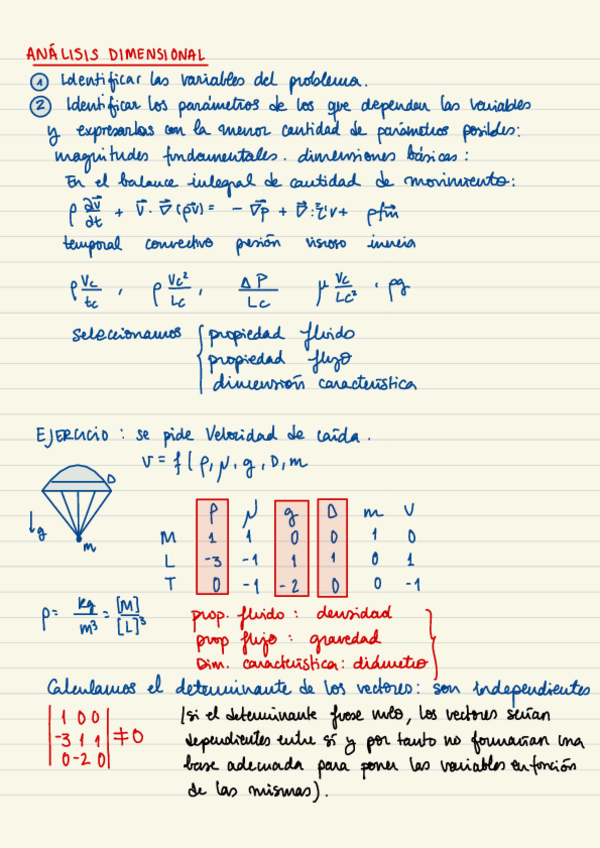 ANÁLISIS DIMENSIONAL
1 Identificar las variables del problema.
2 Identificar los parámetros de los que dependan las variables
y expresarlas con la menor cantidad de parámetros posibles:
magnitudes fundamentales. dimensiones básicas:
En el balance integral de cantidad de movimiento:
ρ ∂v⃗/∂t + v⃗ · ∇⃗(ρv⃗) = - ∇⃗p + ∇⃗:τ'v + ρfm
temporal convectivo presión viscoso inercia
ρ Vc/tc , ρ Vc²/Lc , ΔP/Lc μ Vc/Lc² , ρg
seleccionamos { propiedad fluido
propiedad flujo
dimensión característica
EJERCICIO: se pide Velocidad de caída.
v = f(ρ, μ, g, D, m
D
g
m
ρ μ g D m V
M 1 1 0 0 1 0
L -3 -1 1 1 0 1
T 0 -1 -2 0 0 -1
ρ = kg/m³ = [M]/[L]³
prop. fluido: densidad
prop flujo: gravedad
Dim. característica: diámetro
Calculamos el determinante de los vectores: son independientes
| 1 0 0 |
| -3 1 1 | ≠ 0
| 0 -2 0 |
(si el determinante fuese nulo, los vectores serían
dependientes entre sí y por tanto no formarían una
base adecuada para poner las variables en función
de las mismas).